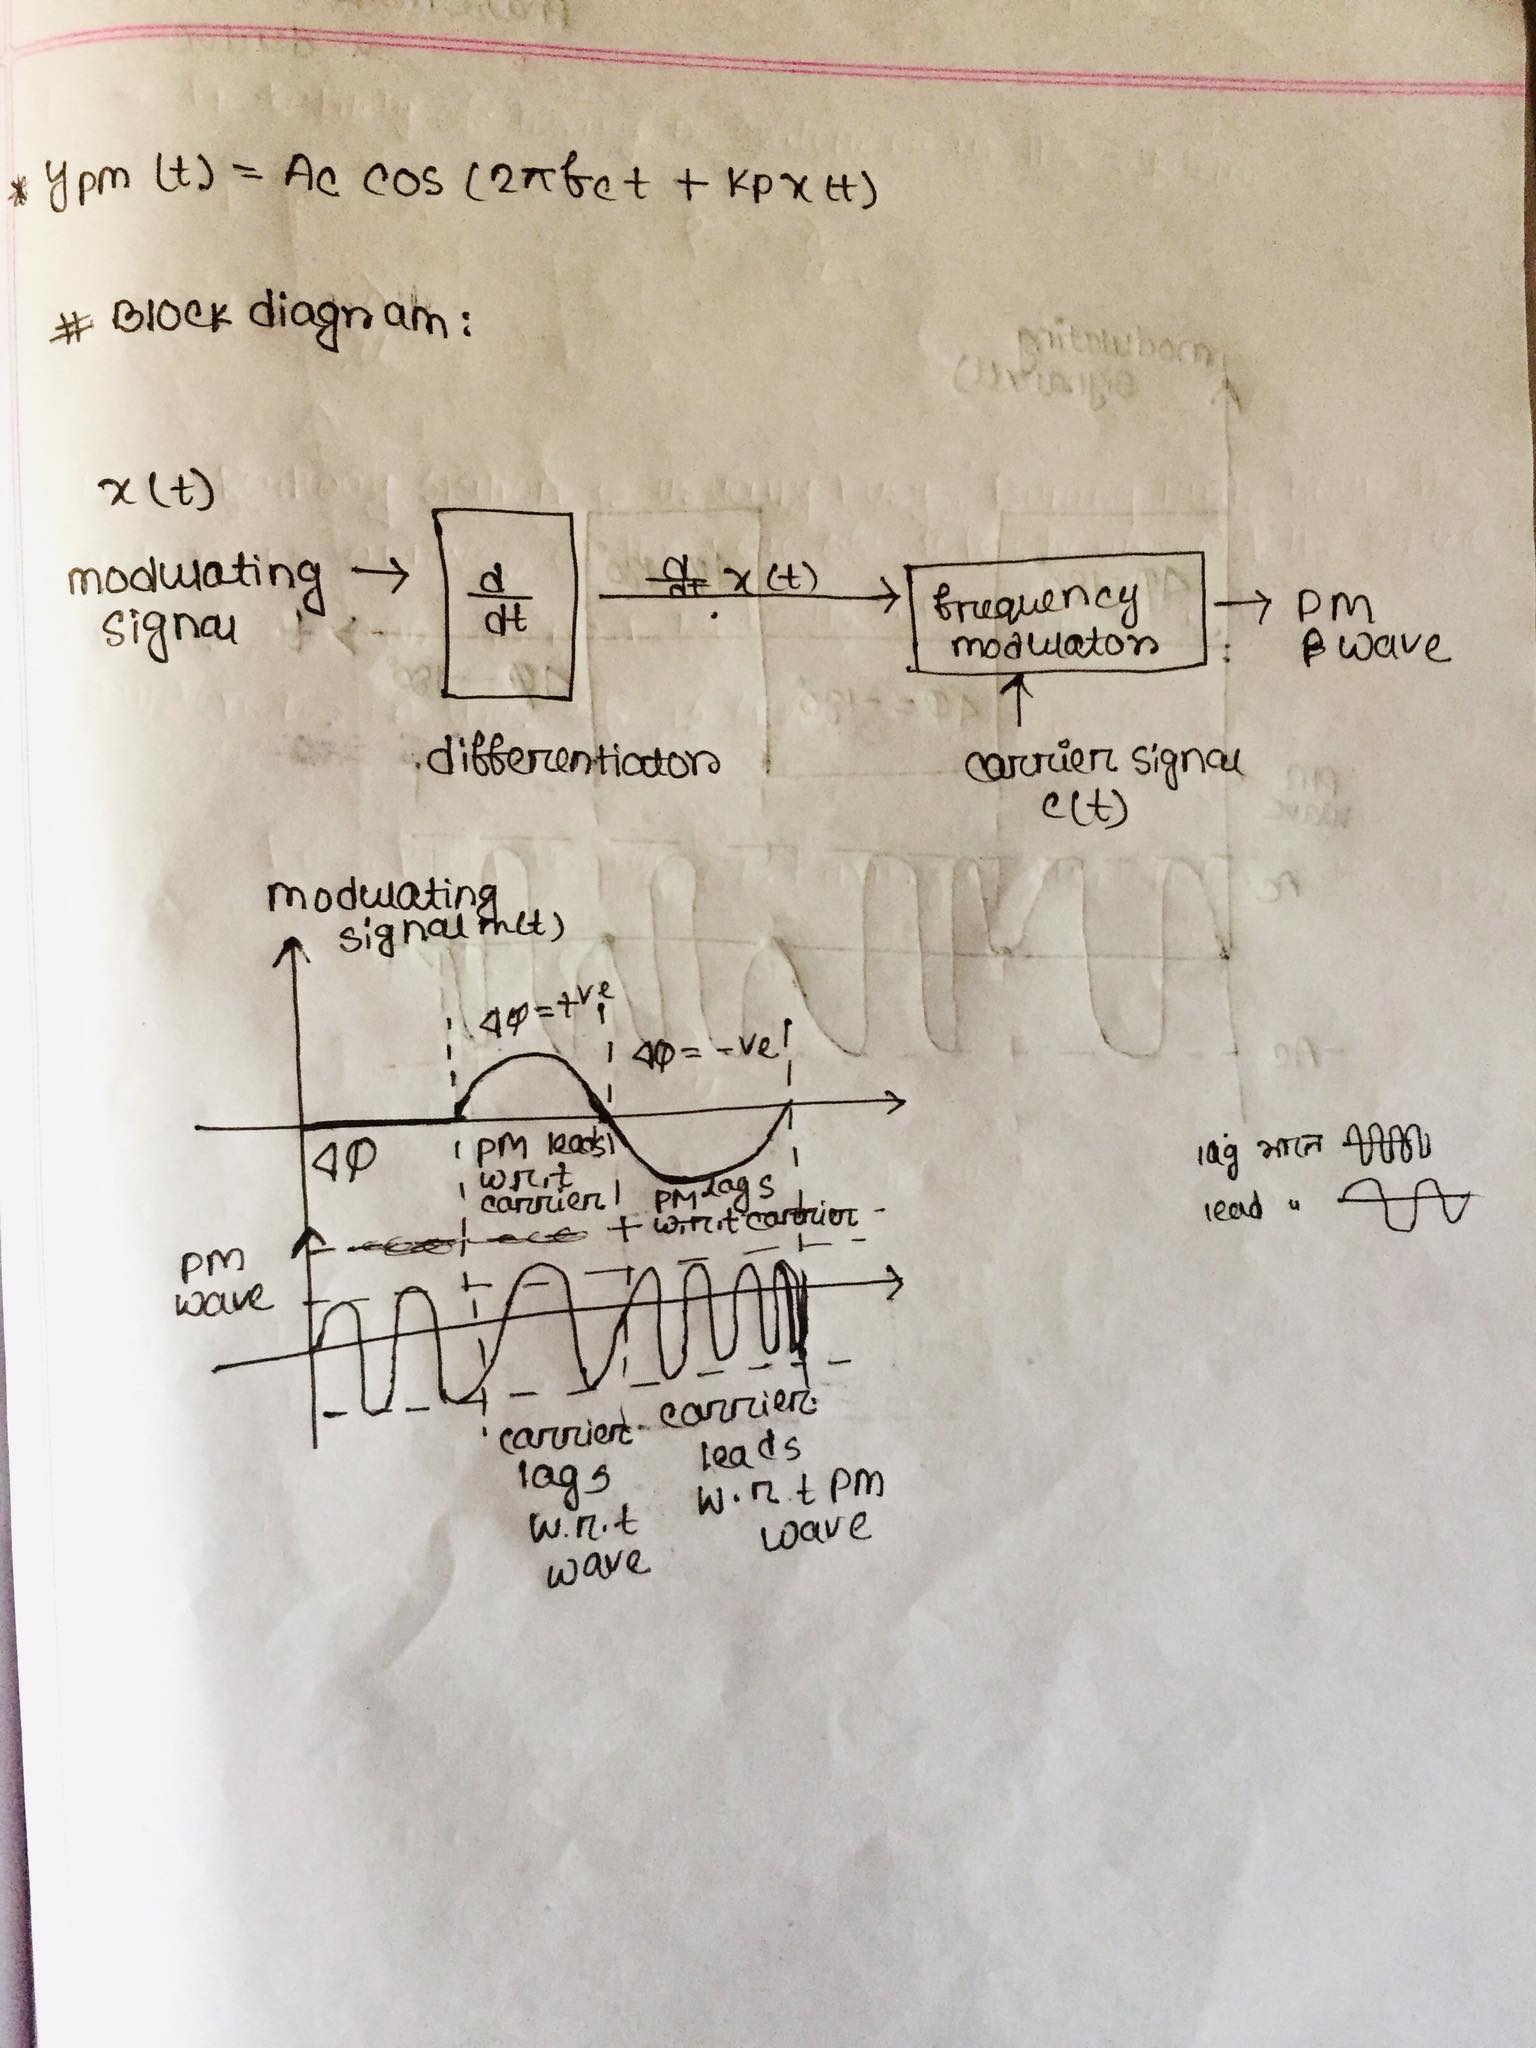 * ypm (t) = Ac cos (2πfct + Kpx(t)
# Block diagram:
x(t)
modulating signal →
d
dt
d/dt x(t)
frequency
modulator
→ PM
wave
differentiator
carrier signal
c(t)
modulating
signal m(t)
Δφ = +ve
Δφ = -ve
Δφ
PM leads
w.r.t
carrier
PM lags
w.r.t carrier
lag মানে
lead "
PM
wave
carrier
lags
w.r.t
wave
carrier
leads
w.r.t PM
wave